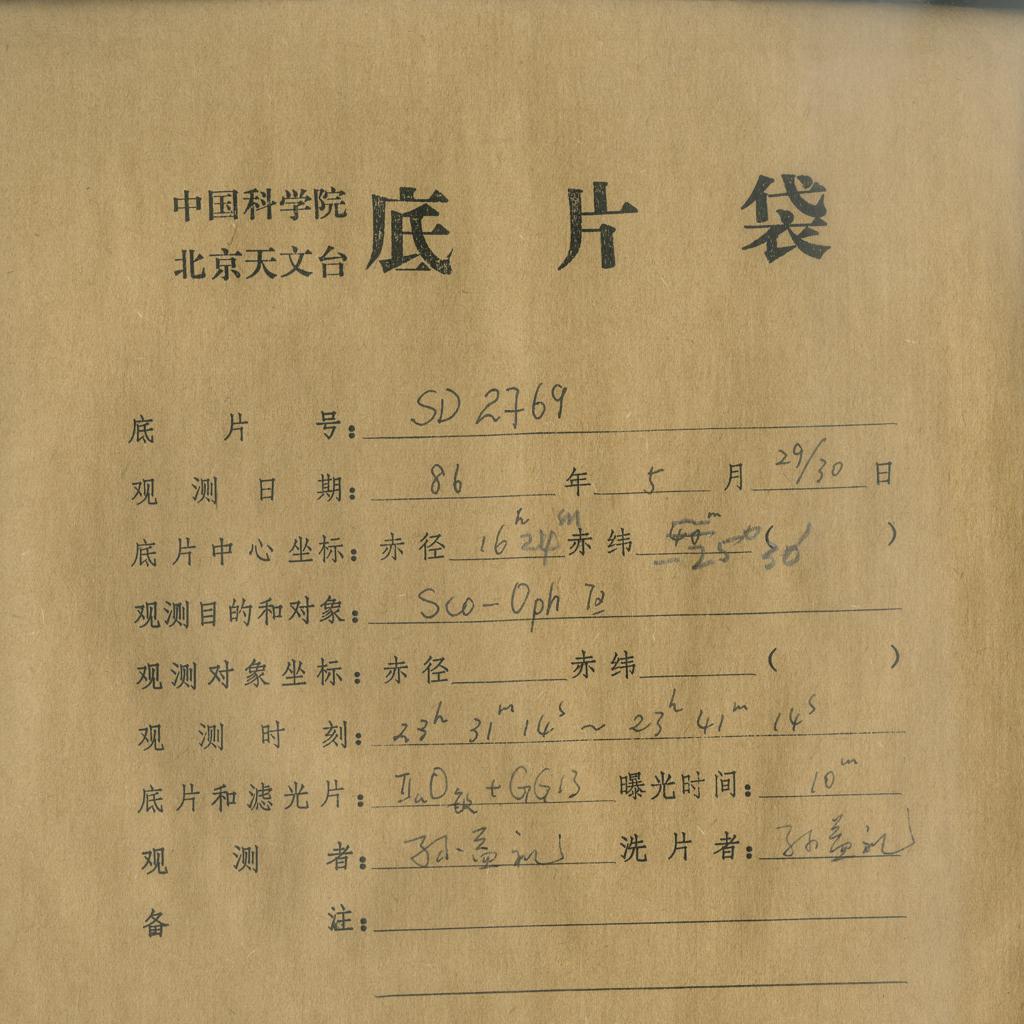 中国科学院
北京天文台
底片袋
底片号: SD 2769
观测日期: 86 年 5 月 29/30 日
底片中心坐标: 赤径 16h 24m 赤纬 -25° 30′ ( )
观测目的和对象: Sco-Oph
观测对象坐标: 赤径 赤纬 ( )
观测时刻: 23h 31m 14s ~ 23h 41m 14s
底片和滤光片: IIaO +GG13 曝光时间: 10m
观测者: 孙益礼 洗片者: 孙益礼
备注: